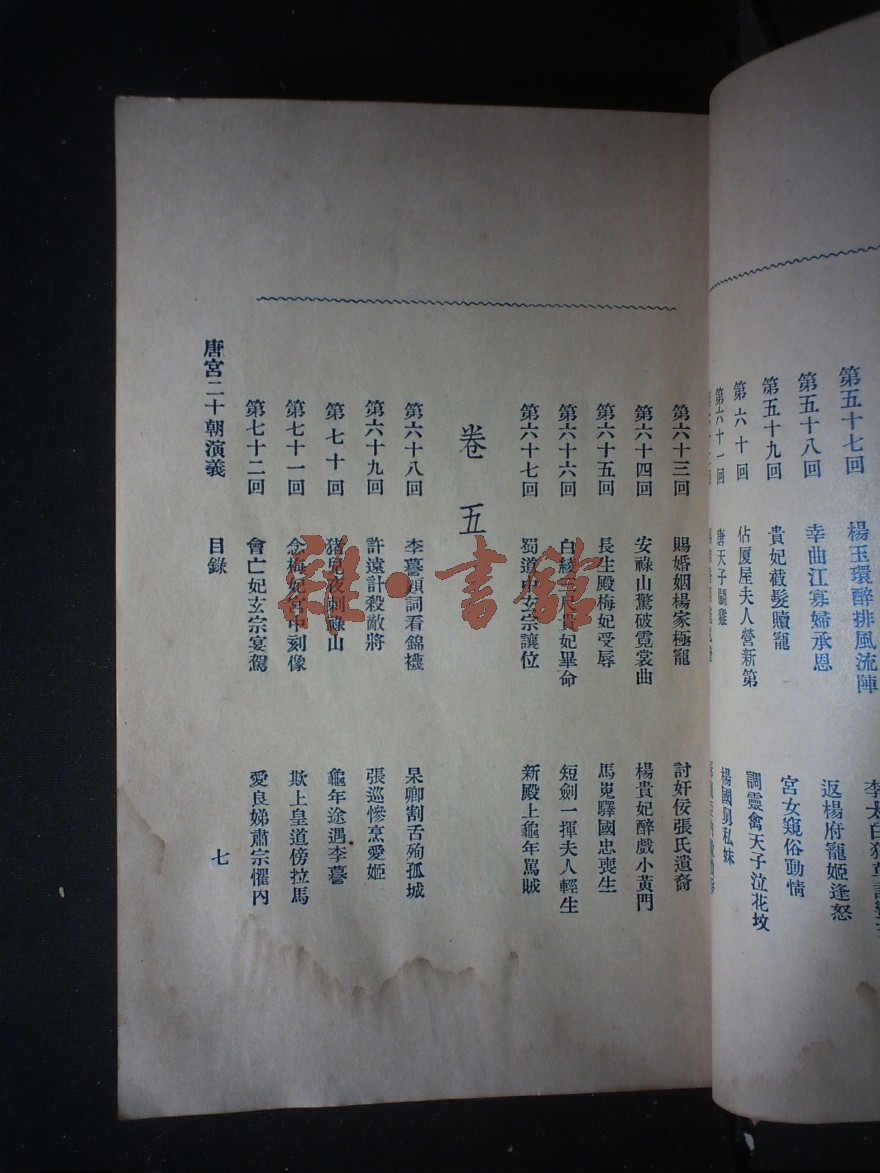 第五十七回 楊玉環醉排風流陣 李太白
第五十八回 幸曲江寡婦承恩 返楊府寵姬逢怒
第五十九回 貴妃截髮贖寵 宮女窺俗動情
第六十回 佔厦屋夫人營新第 調靈禽天子泣花坟
第六十一回 唐天子鬭雞 楊國舅私妹
第六十三回 賜婚姻楊家極寵 討奸佞張氏遺裔
第六十四回 安祿山驚破霓裳曲 楊貴妃醉戲小黃門
第六十五回 長生殿梅妃受辱 馬嵬驛國忠喪生
第六十六回 白綾尺貴妃畢命 短劍一揮夫人輕生
第六十七回 蜀道中玄宗讓位 新殿上龜年罵賊
卷五
第六十八回 李謩題詞看錦襪 杲卿割舌殉孤城
第六十九回 許遠計殺敵將 張巡慘烹愛姬
第七十回 猪兒夜刺祿山 龜年途遇李謩
第七十一回 念梅妃宮中刻像 欺上皇道傍拉馬
第七十二回 會亡妃玄宗宴駕 愛良娣肅宗懼內
唐宮二十朝演義 目錄 七
雜·書館